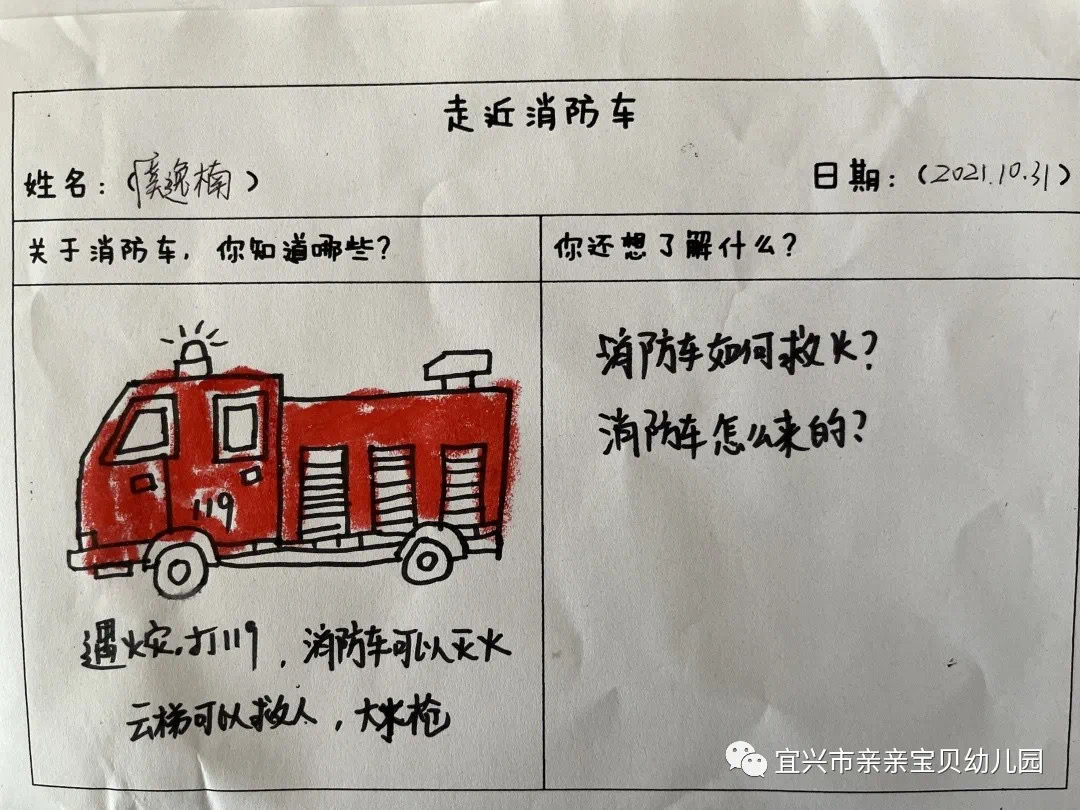 走近消防车
姓名：（虞逸楠）
日期：（2021.10.31）
关于消防车，你知道哪些？
你还想了解什么？
消防车如何救火？
消防车怎么来的？
119
遇火灾，打119，消防车可以灭火
云梯可以救人，大水枪
宜兴市亲亲宝贝幼儿园